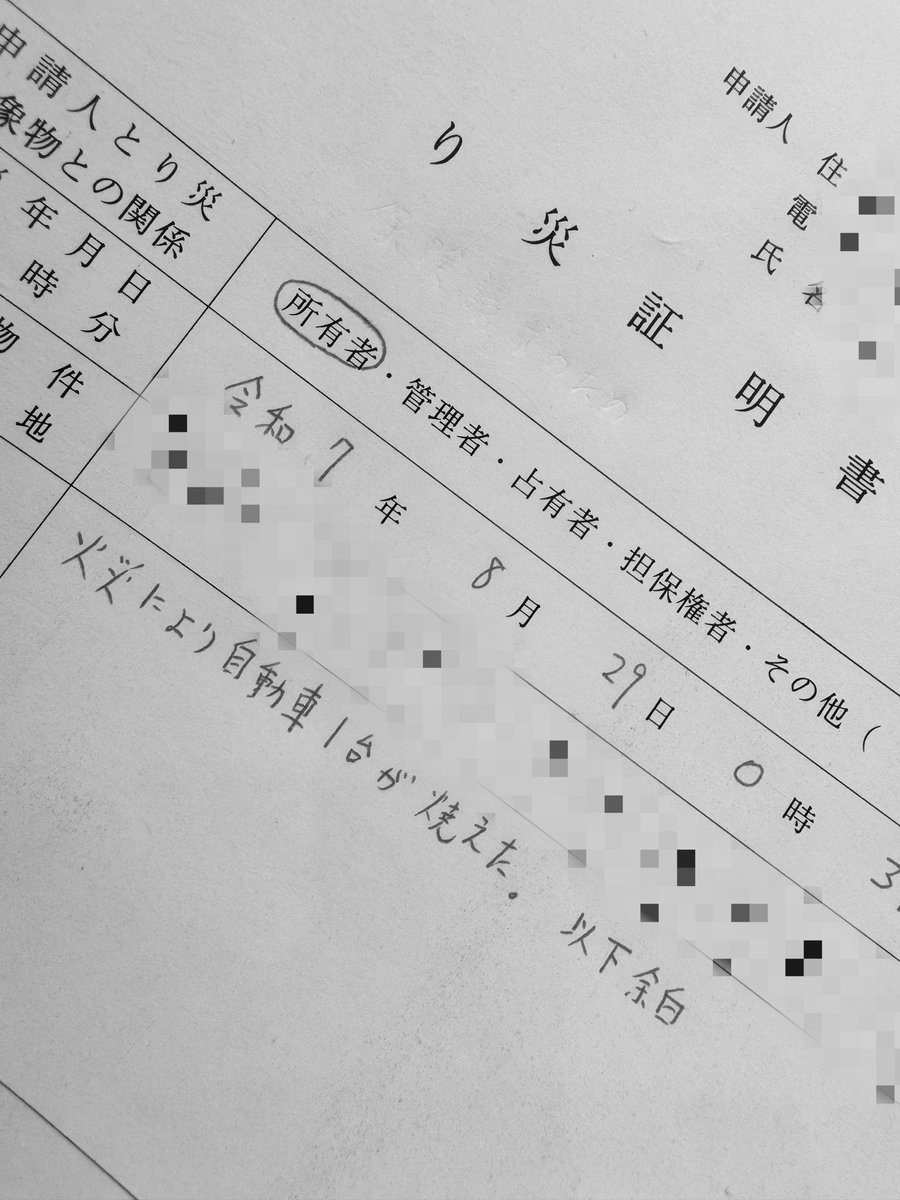 り災証明書
申請人
住
電
氏名
申請人とり災
象物との関係
所有者・管理者・占有者・担保権者・その他（
年月日
時分
令和7年8月29日0時3
物件
地
火災により自動車1台が焼えた。以下余白